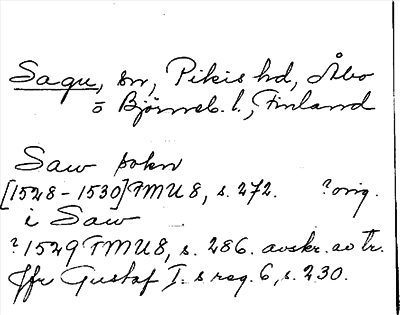 Sagu, sn, Pikis hd, Åbo
o Björneb. l., Finland
Saw sokn
[1528-1530] TMU 8, s. 272. ?orig.
i Saw
?1529 TMU 8, s. 286. avskr. av tr.
Jfr Gustaf I:s reg. 6, s. 230.